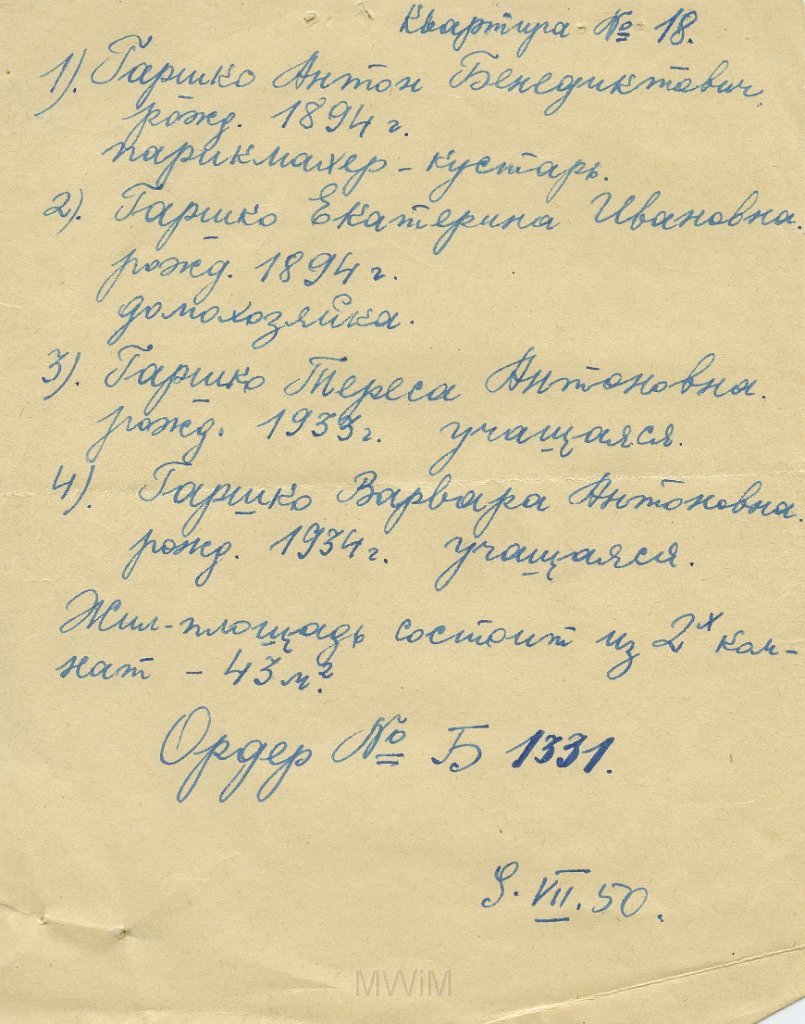 Квартира № 18.
1). Гаршко Антон Бенедиктович
рожд. 1894 г.
парикмахер - кустарь.
2). Гаршко Екатерина Ивановна.
рожд. 1894 г.
домохозяйка.
3). Гаршко Тереса Антоновна.
рожд. 1933 г. учащаяся.
4). Гаршко Варвара Антоновна.
рожд. 1934 г. учащаяся.
Жил-площадь состоит из 2х ком-
нат - 43 м².
Ордер № Б 1331.
9.VII.50.
MWiM